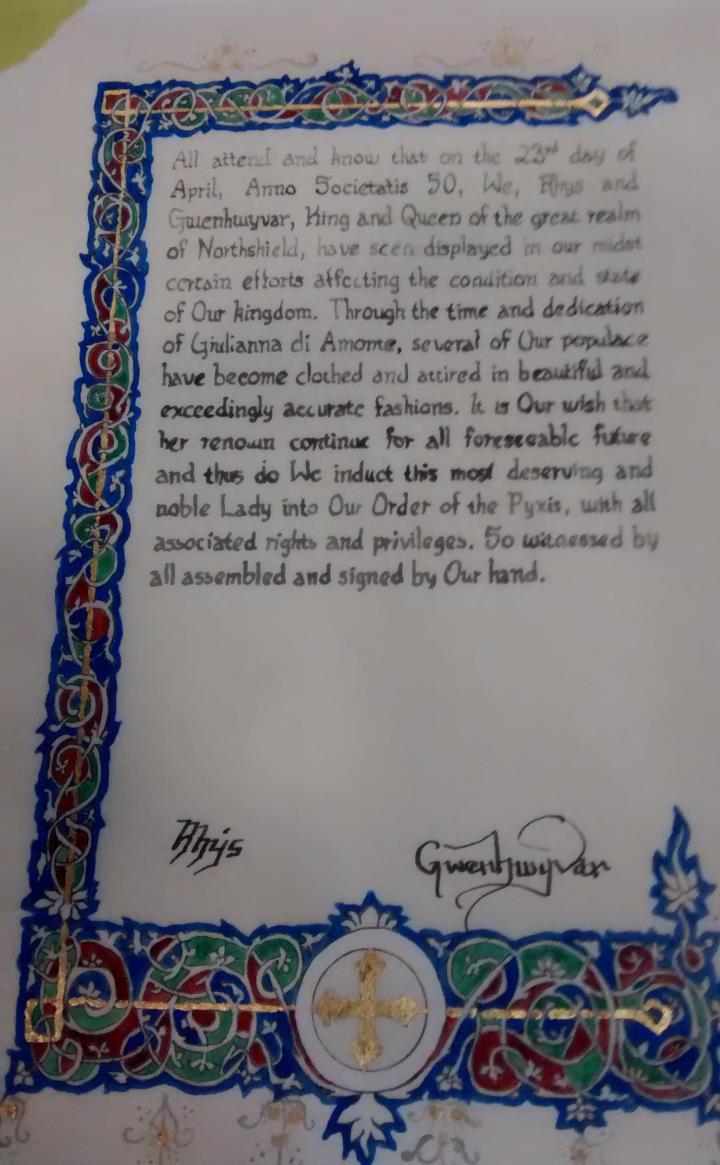 All attend and know that on the 23rd day of
April, Anno Societatis 50, We, Rhys and
Gwenhwyvar, King and Queen of the great realm
of Northshield, have seen displayed in our midst
certain efforts affecting the condition and state
of Our kingdom. Through the time and dedication
of Giulianna di Amorre, several of Our populace
have become clothed and attired in beautiful and
exceedingly accurate fashions. It is Our wish that
her renown continue for all foreseeable future
and thus do We induct this most deserving and
noble Lady into Our Order of the Pyxis, with all
associated rights and privileges. So witnessed by
all assembled and signed by Our hand.
Rhys Gwenhwyvar